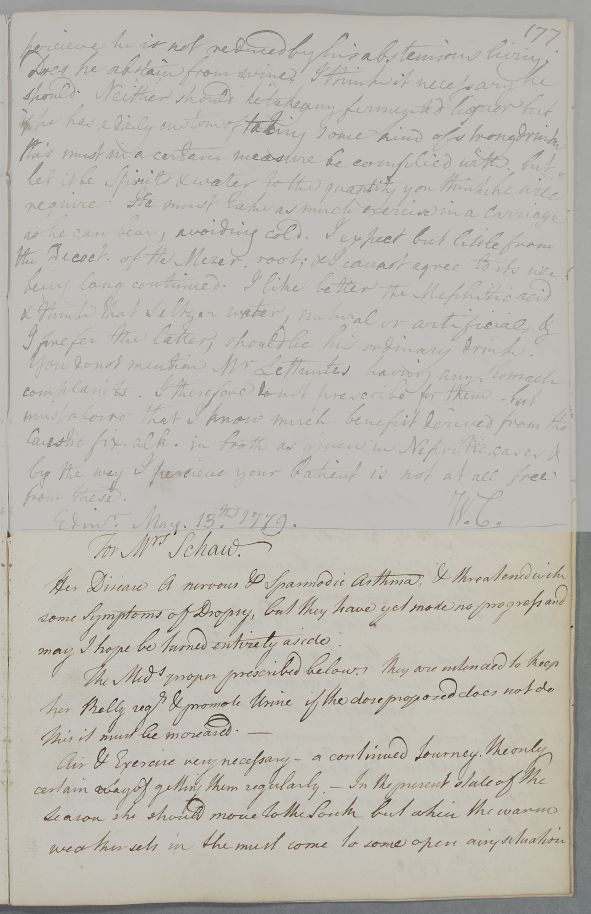 177
percieve he is not reduced by his abstemious living.
Does he abstain from wine? I think it necessary he
should. Neither should he take any fermented liquor but
he has a daily custom of taking some kind of strong drink
this must in a certain measure be complied with, but
let it be Spirits & water to the quantity you think he will
require. He must take as much exercise in a Carriage
as he can bear, avoiding cold. I expect but little from
the Decoct. of the Mezer. root; & I cannot agree to its use
being long continued. I like better the Mephitic acid
& think that Seltzer water, natural or artificial, &
I prefer the latter, should be his ordinary drink.
You do not mention Mr LeHuntes having any Stomach
complaints. I therefore do not prescribe for them - but
must observe that I know much benefit derived from the
Caustic fix. alk. in broth as given in Nephritic cases &
by the way I percieve your Patient is not at all free
from these.
Edinr. May. 13th 1779. W.C.
For Mrs Schaw.
Her Disease A nervous & Spasmodic Asthma, & threatened with
some Symptoms of Dropsy, but they have yet made no progress and
may I hope be turned entirely aside.
The Meds proper prescribed below. they are intended to keep
her Belly regr & promote Urine if the dose proposed does not do
this it must be increased. —
Air & Exercise very necessary - a continued Journey the only
certain way of getting them regularly. — In the present state of the
Season she should move to the South but when the warm
weather sets in she must come to some open airy situation